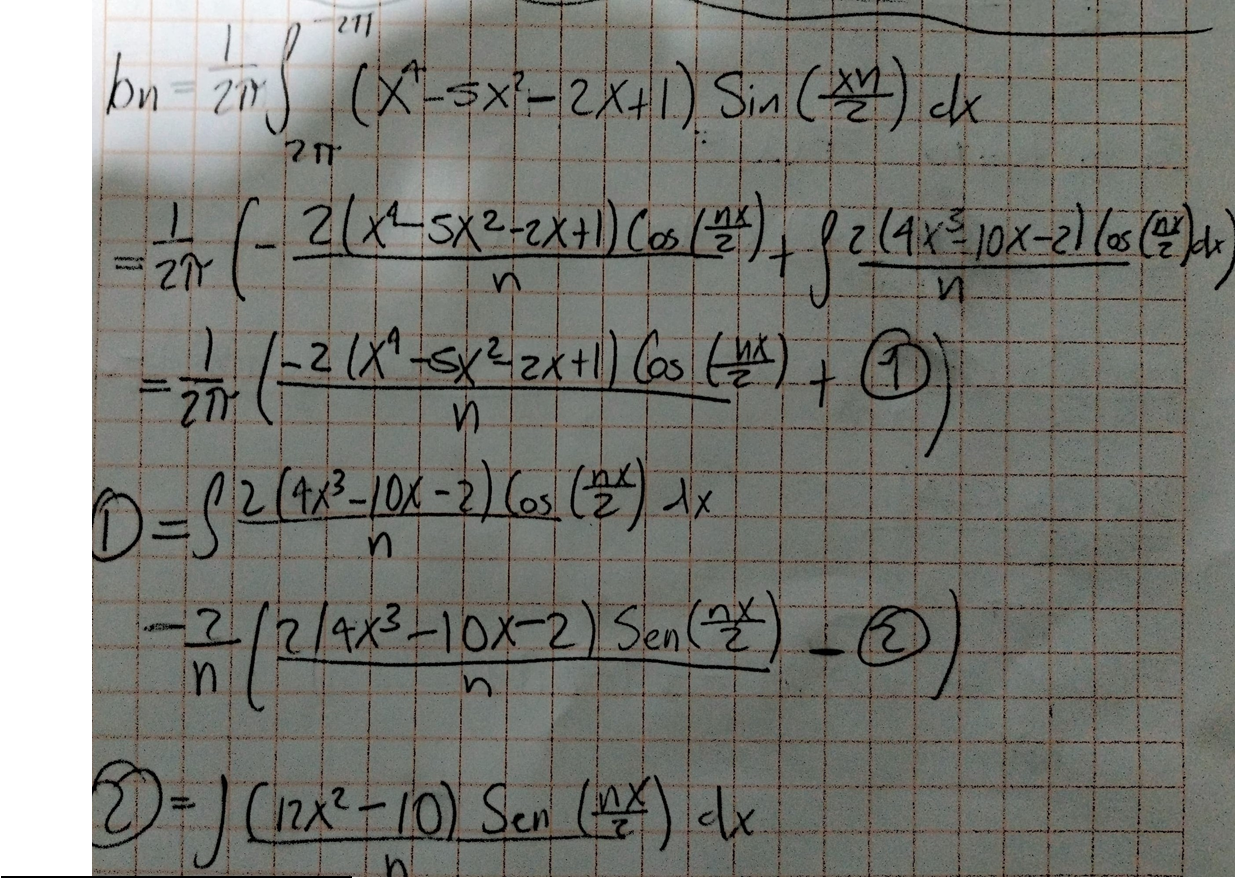 bn = 1/2π ∫_{2π}^{-2π} (x⁴-5x²-2x+1) Sin (xn/2) dx
= 1/2π (- 2(x⁴-5x²-2x+1) Cos (nx/2) / n + ∫ 2(4x³-10x-2) Cos (nx/2) dx / n)
= 1/2π (-2(x⁴-5x²-2x+1) Cos (nx/2) / n + ①)
① = ∫ 2(4x³-10x-2) Cos (nx/2) / n dx
- 2/n (2(4x³-10x-2) Sen (nx/2) / n - ②)
② = ∫ (12x²-10) Sen (nx/2) / n dx